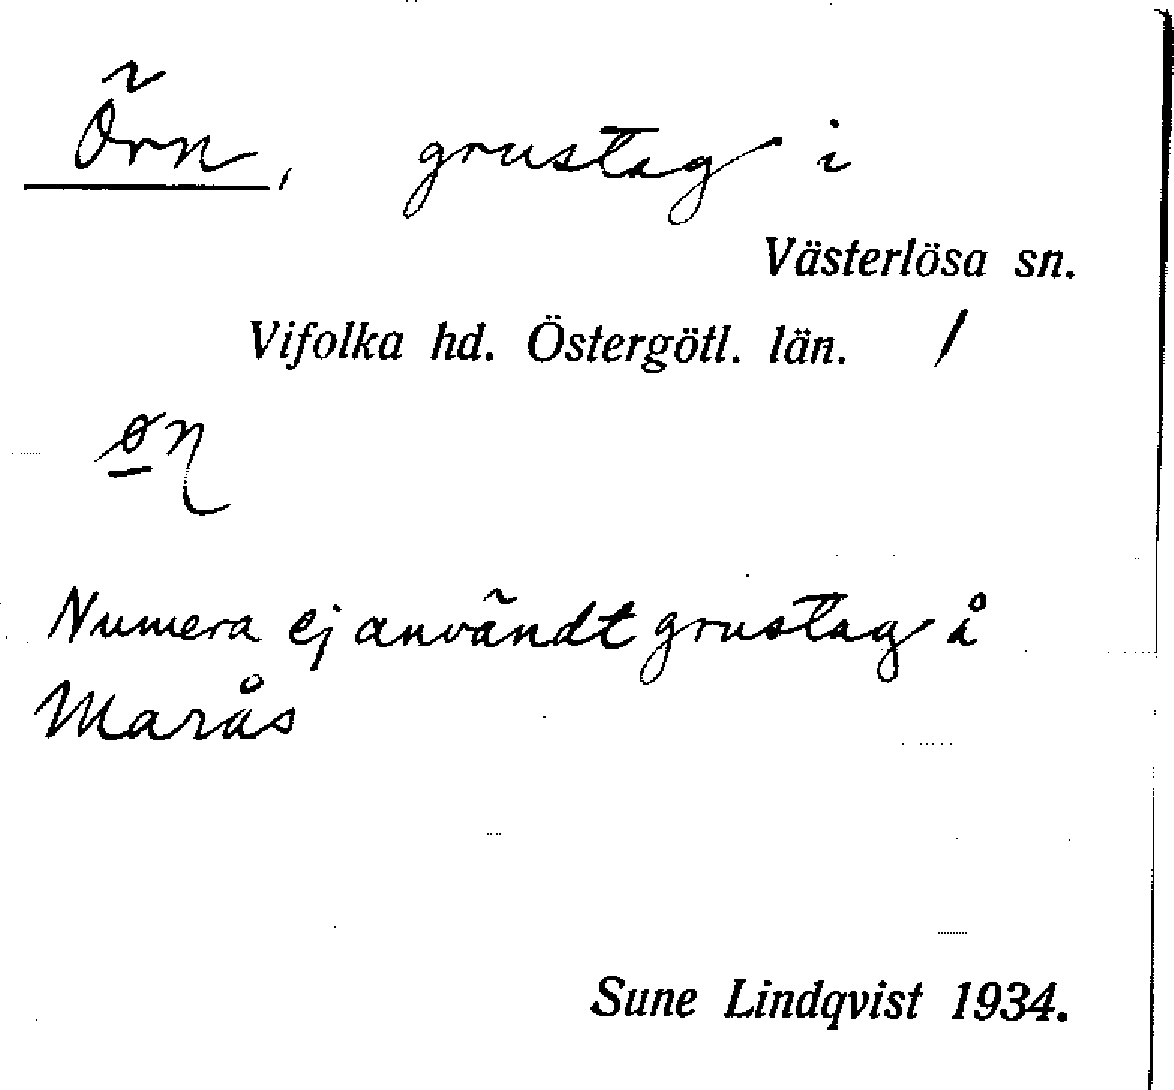 Örn, grustag i
Västerlösa sn.
Vifolka hd. Östergötl. län. /
øɳ
Numera ej användt grustag å
Marås
Sune Lindqvist 1934.